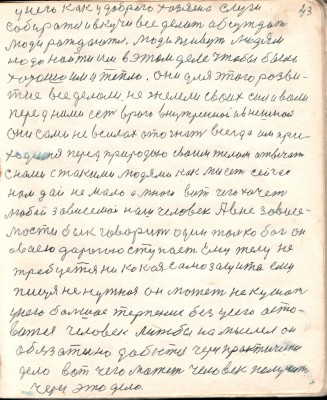 у него как у доброго хозяина слуги 43
собирались в кучи все делать обсуждать
люди рождаются. Люди живут людям
надо найти им в этом деле чтобы было
хорошо им и тепло. они для этого розви-
тие все делали. не жалели своих сил и воли
перед ними есть враг внутренний и внешний
они сами не в силах отогнать всегда им при-
ходится перед природою своим телом отвечать
с нами с такими людями как мы есть сейчас
нам дай не мало а много вот чего хочет
любой зависимой наш человек А в не зависи-
мости бык говорит один только бог он
своею дорогою ступает Ему телу не
требуется ни какая самозащита ему
пища не нужная он может не кушать
у него большое терпение без чего оста-
ваться человек лишь бы на мысле он
обязательно добьется через практическое
дело вот чего может человек получить
через это дело.